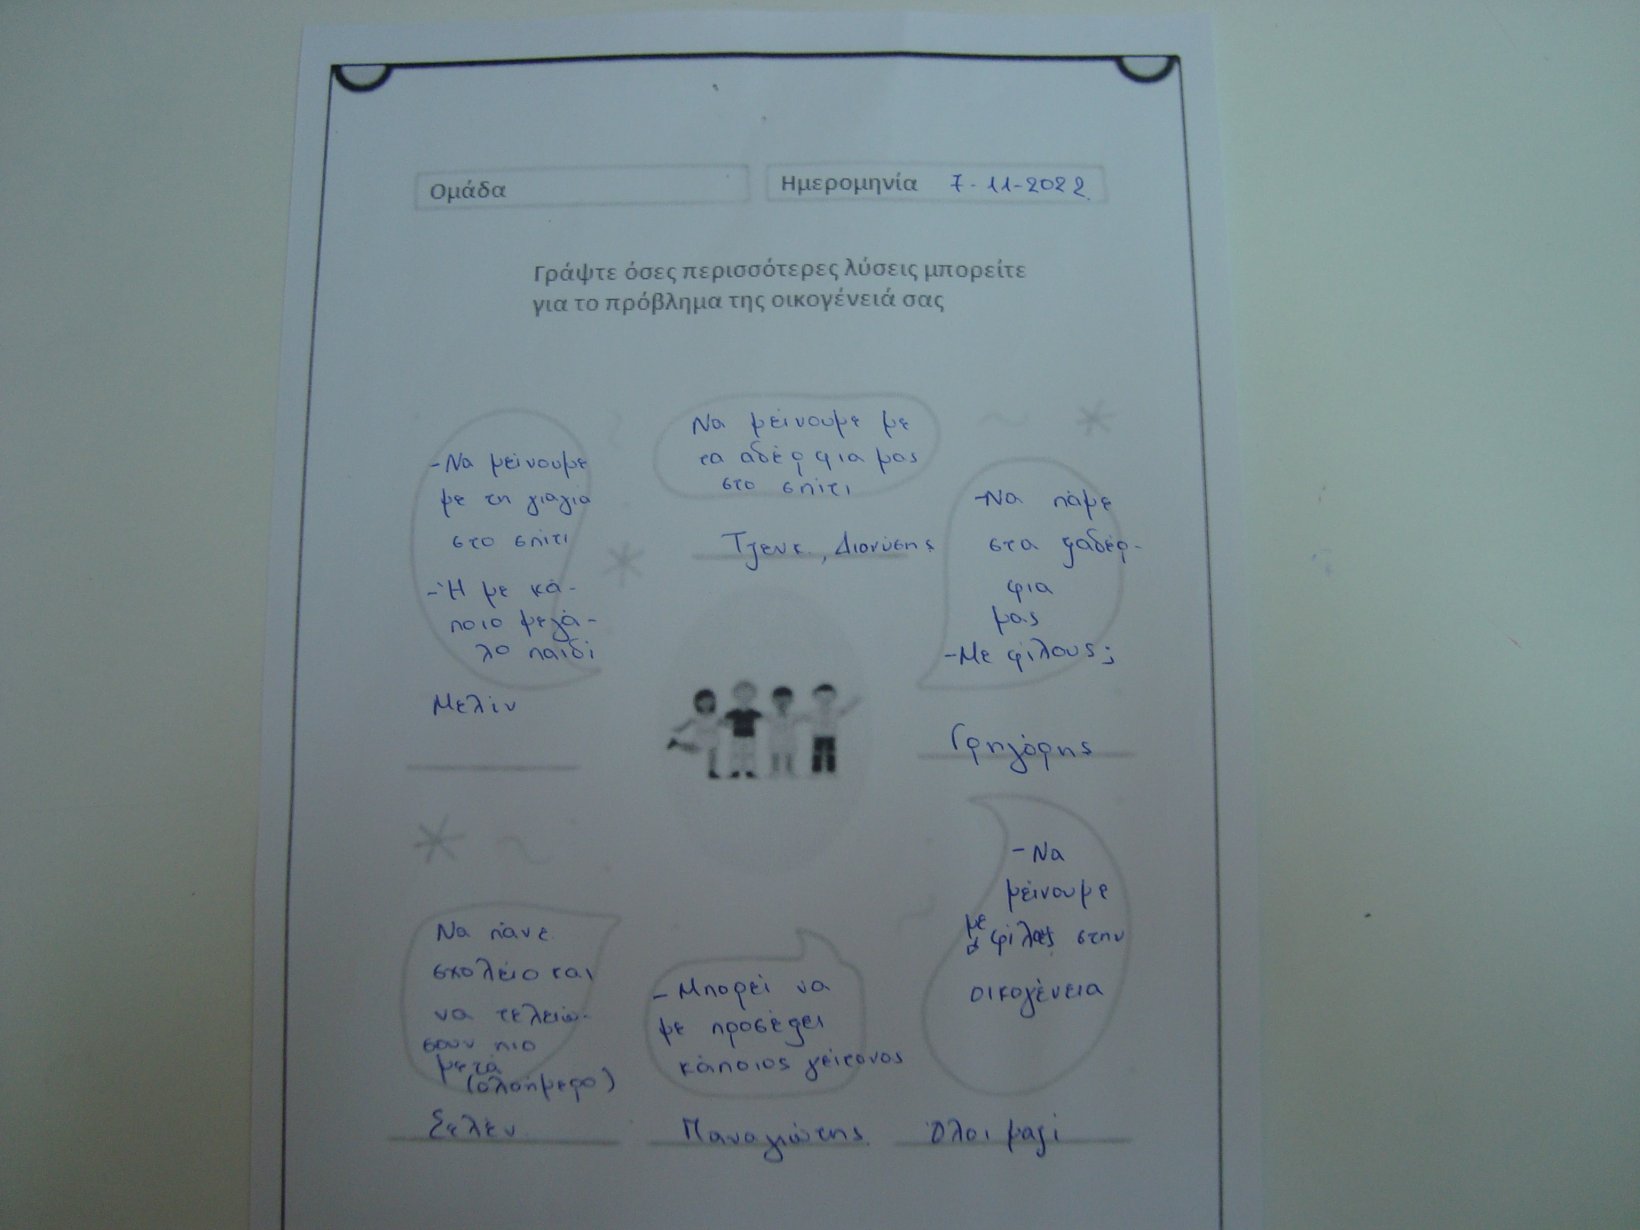 Ομάδα
Ημερομηνία 7-11-2022
Γράψτε όσες περισσότερες λύσεις μπορείτε
για το πρόβλημα της οικογένειά σας
Να μείνουμε με
τα αδέρφια μας
στο σπίτι
Τζενκ, Διονύσης
-Να μείνουμε
με τη γιαγιά
στο σπίτι
-Ή με κά-
ποιο μεγά-
λο παιδί
Μελίν
-Να πάμε
στα ξαδέρ-
φια
μας
-Με φίλους;
Γρηγόρης
Να πάνε
σχολείο και
να τελειώ-
σουν πιο
μετά
(ολοήμερο)
Σελέν
-Μπορεί να
με προσέχει
κάποιος γείτονας
Παναγιώτης
-Να
μείνουμε
με φίλες στην
οικογένεια
Όλοι μαζί